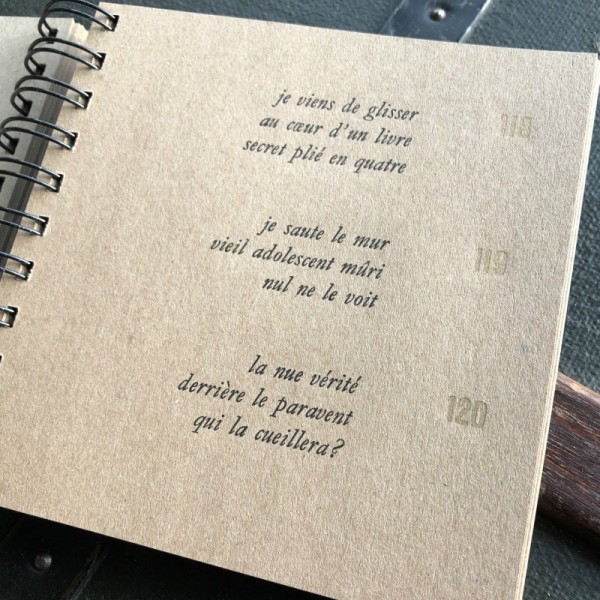 je viens de glisser
au cœur d'un livre
secret plié en quatre
118
je saute le mur
vieil adolescent mûri
nul ne le voit
119
la nue vérité
derrière le paravent
qui la cueillera?
120